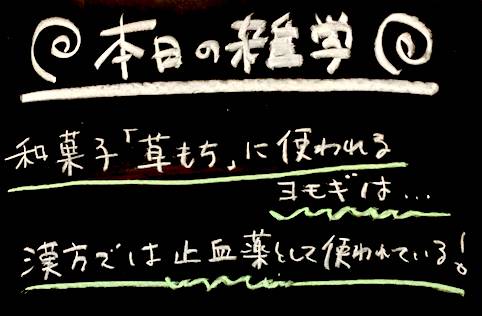 本日の雑学
和菓子「草もち」に使われる
ヨモギは…
漢方では止血薬として使われている!